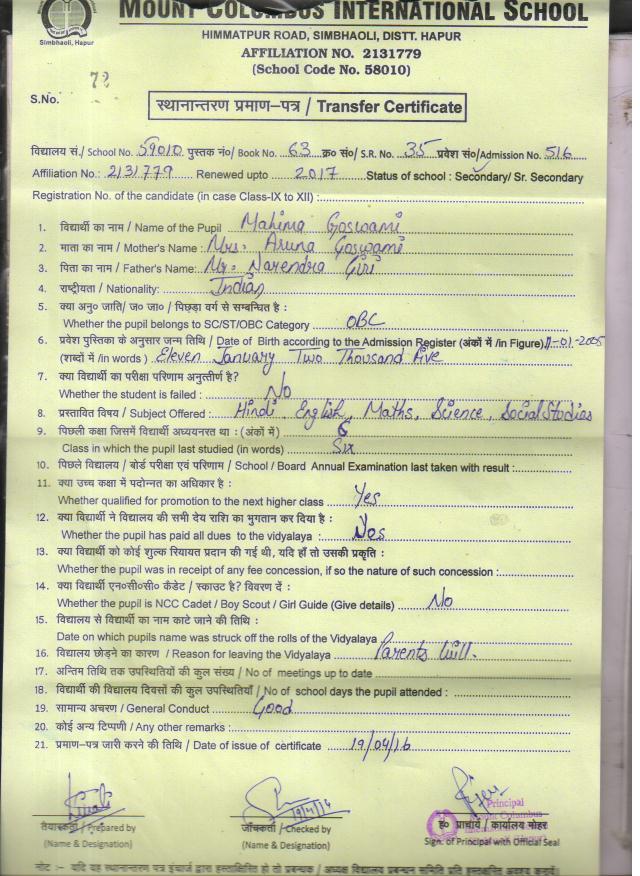 MOUNT COLUMBUS INTERNATIONAL SCHOOL
Simbhaoli, Hapur
HIMMATPUR ROAD, SIMBHAOLI, DISTT. HAPUR
AFFILIATION NO. 2131779
(School Code No. 58010)
72
S.No.
स्थानान्तरण प्रमाण-पत्र / Transfer Certificate
विद्यालय सं./ School No. 59010 पुस्तक नं०/ Book No. 63 क्र० सं०/ S.R. No. 35 प्रवेश सं०/Admission No. 516
Affiliation No.: 2131779 Renewed upto 2017 Status of school : Secondary/ Sr. Secondary
Registration No. of the candidate (in case Class-IX to XII) :
1. विद्यार्थी का नाम / Name of the Pupil Mahima Goswami
2. माता का नाम / Mother's Name : Mrs. Aruna Goswami
3. पिता का नाम / Father's Name: Mr. Narendra Giri
4. राष्ट्रीयता / Nationality: Indian
5. क्या अनु० जाति/ ज० जा० / पिछड़ा वर्ग से सम्बन्धित है :
Whether the pupil belongs to SC/ST/OBC Category OBC
6. प्रवेश पुस्तिका के अनुसार जन्म तिथि / Date of Birth according to the Admission Register (अंकों में /in Figure) 11-01-2005
(शब्दों में /in words ) Eleven January Two Thousand Five
7. क्या विद्यार्थी का परीक्षा परिणाम अनुत्तीर्ण है?
Whether the student is failed : No
8. प्रस्तावित विषय / Subject Offered : Hindi, English, Maths, Science, Social Studies
9. पिछली कक्षा जिसमें विद्यार्थी अध्ययनरत था : (अंकों में ) 6
Class in which the pupil last studied (in words) Six
10. पिछले विद्यालय / बोर्ड परीक्षा एवं परिणाम / School / Board Annual Examination last taken with result :
11. क्या उच्च कक्षा में पदोन्नत का अधिकार है :
Whether qualified for promotion to the next higher class Yes
12. क्या विद्यार्थी ने विद्यालय की सभी देय राशि का भुगतान कर दिया है :
Whether the pupil has paid all dues to the vidyalaya : Yes
13. क्या विद्यार्थी को कोई शुल्क रियायत प्रदान की गई थी, यदि हाँ तो उसकी प्रकृति :
Whether the pupil was in receipt of any fee concession, if so the nature of such concession :
14. क्या विद्यार्थी एन०सी०सी० कैडेट / स्काउट है? विवरण दें :
Whether the pupil is NCC Cadet / Boy Scout / Girl Guide (Give details) No
15. विद्यालय से विद्यार्थी का नाम काटे जाने की तिथि :
Date on which pupils name was struck off the rolls of the Vidyalaya
16. विद्यालय छोड़ने का कारण / Reason for leaving the Vidyalaya Parents Will.
17. अन्तिम तिथि तक उपस्थितियों की कुल संख्या / No of meetings up to date
18. विद्यार्थी की विद्यालय दिवसों की कुल उपस्थितियाँ / No of school days the pupil attended :
19. सामान्य अचरण / General Conduct Good
20. कोई अन्य टिप्पणी / Any other remarks :
21. प्रमाण-पत्र जारी करने की तिथि / Date of issue of certificate 19/04/16
19/4/14
Principal
तैयारकर्ता / Prepared by जाँचकर्ता / Checked by ह० प्राचार्य / कार्यालय मोहर
(Name & Designation) (Name & Designation) Sign. of Principal with Official Seal
नोट :- यदि यह स्थानान्तरण पत्र इंचार्ज द्वारा हस्ताक्षरित हो तो प्रबन्धक / अध्यक्ष विद्यालय प्रबन्धन समिति प्रति हस्ताक्षरित अवश्य करायें